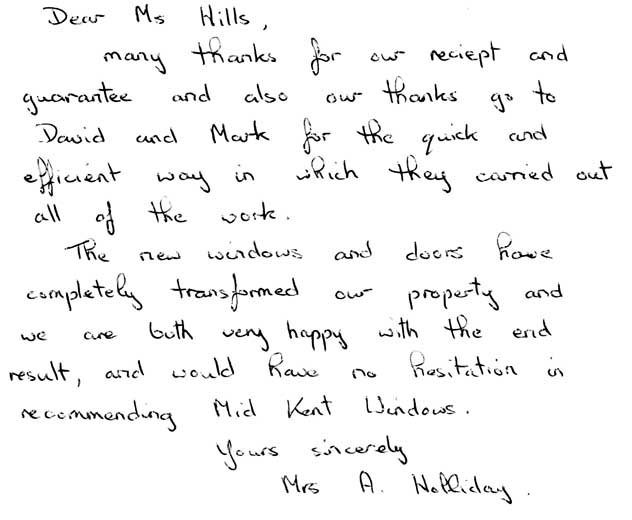 Dear Ms Hills,
many thanks for our reciept and
guarantee and also our thanks go to
David and Mark for the quick and
efficient way in which they carried out
all of the work.
The new windows and doors have
completely transformed our property and
we are both very happy with the end
result, and would have no hesitation in
recommending Mid Kent Windows.
Yours sincerely
Mrs A. Holliday.